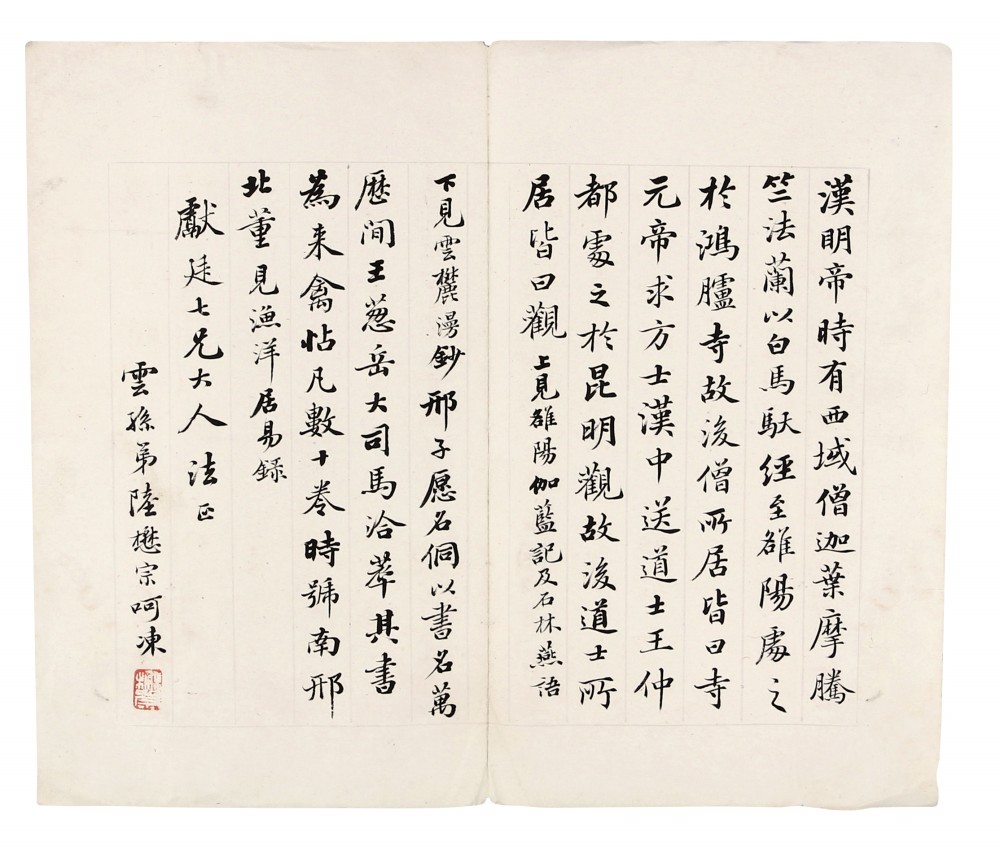 漢明帝時有西域僧迦葉摩騰
竺法蘭以白馬馱經至雒陽處之
於鴻臚寺故後僧所居皆曰寺
元帝求方士漢中送道士王仲
都處之於昆明觀故後道士所
居皆曰觀上見雒陽伽藍記及石林燕語
下見雲麓漫鈔邢子愿名侗以書名萬
歷間王葱岳大司馬洽萃其書
為来禽帖凡數十卷時號南邢
北董見漁洋居易録
獻廷七兄大人法正
雲孫弟陸懋宗呵凍